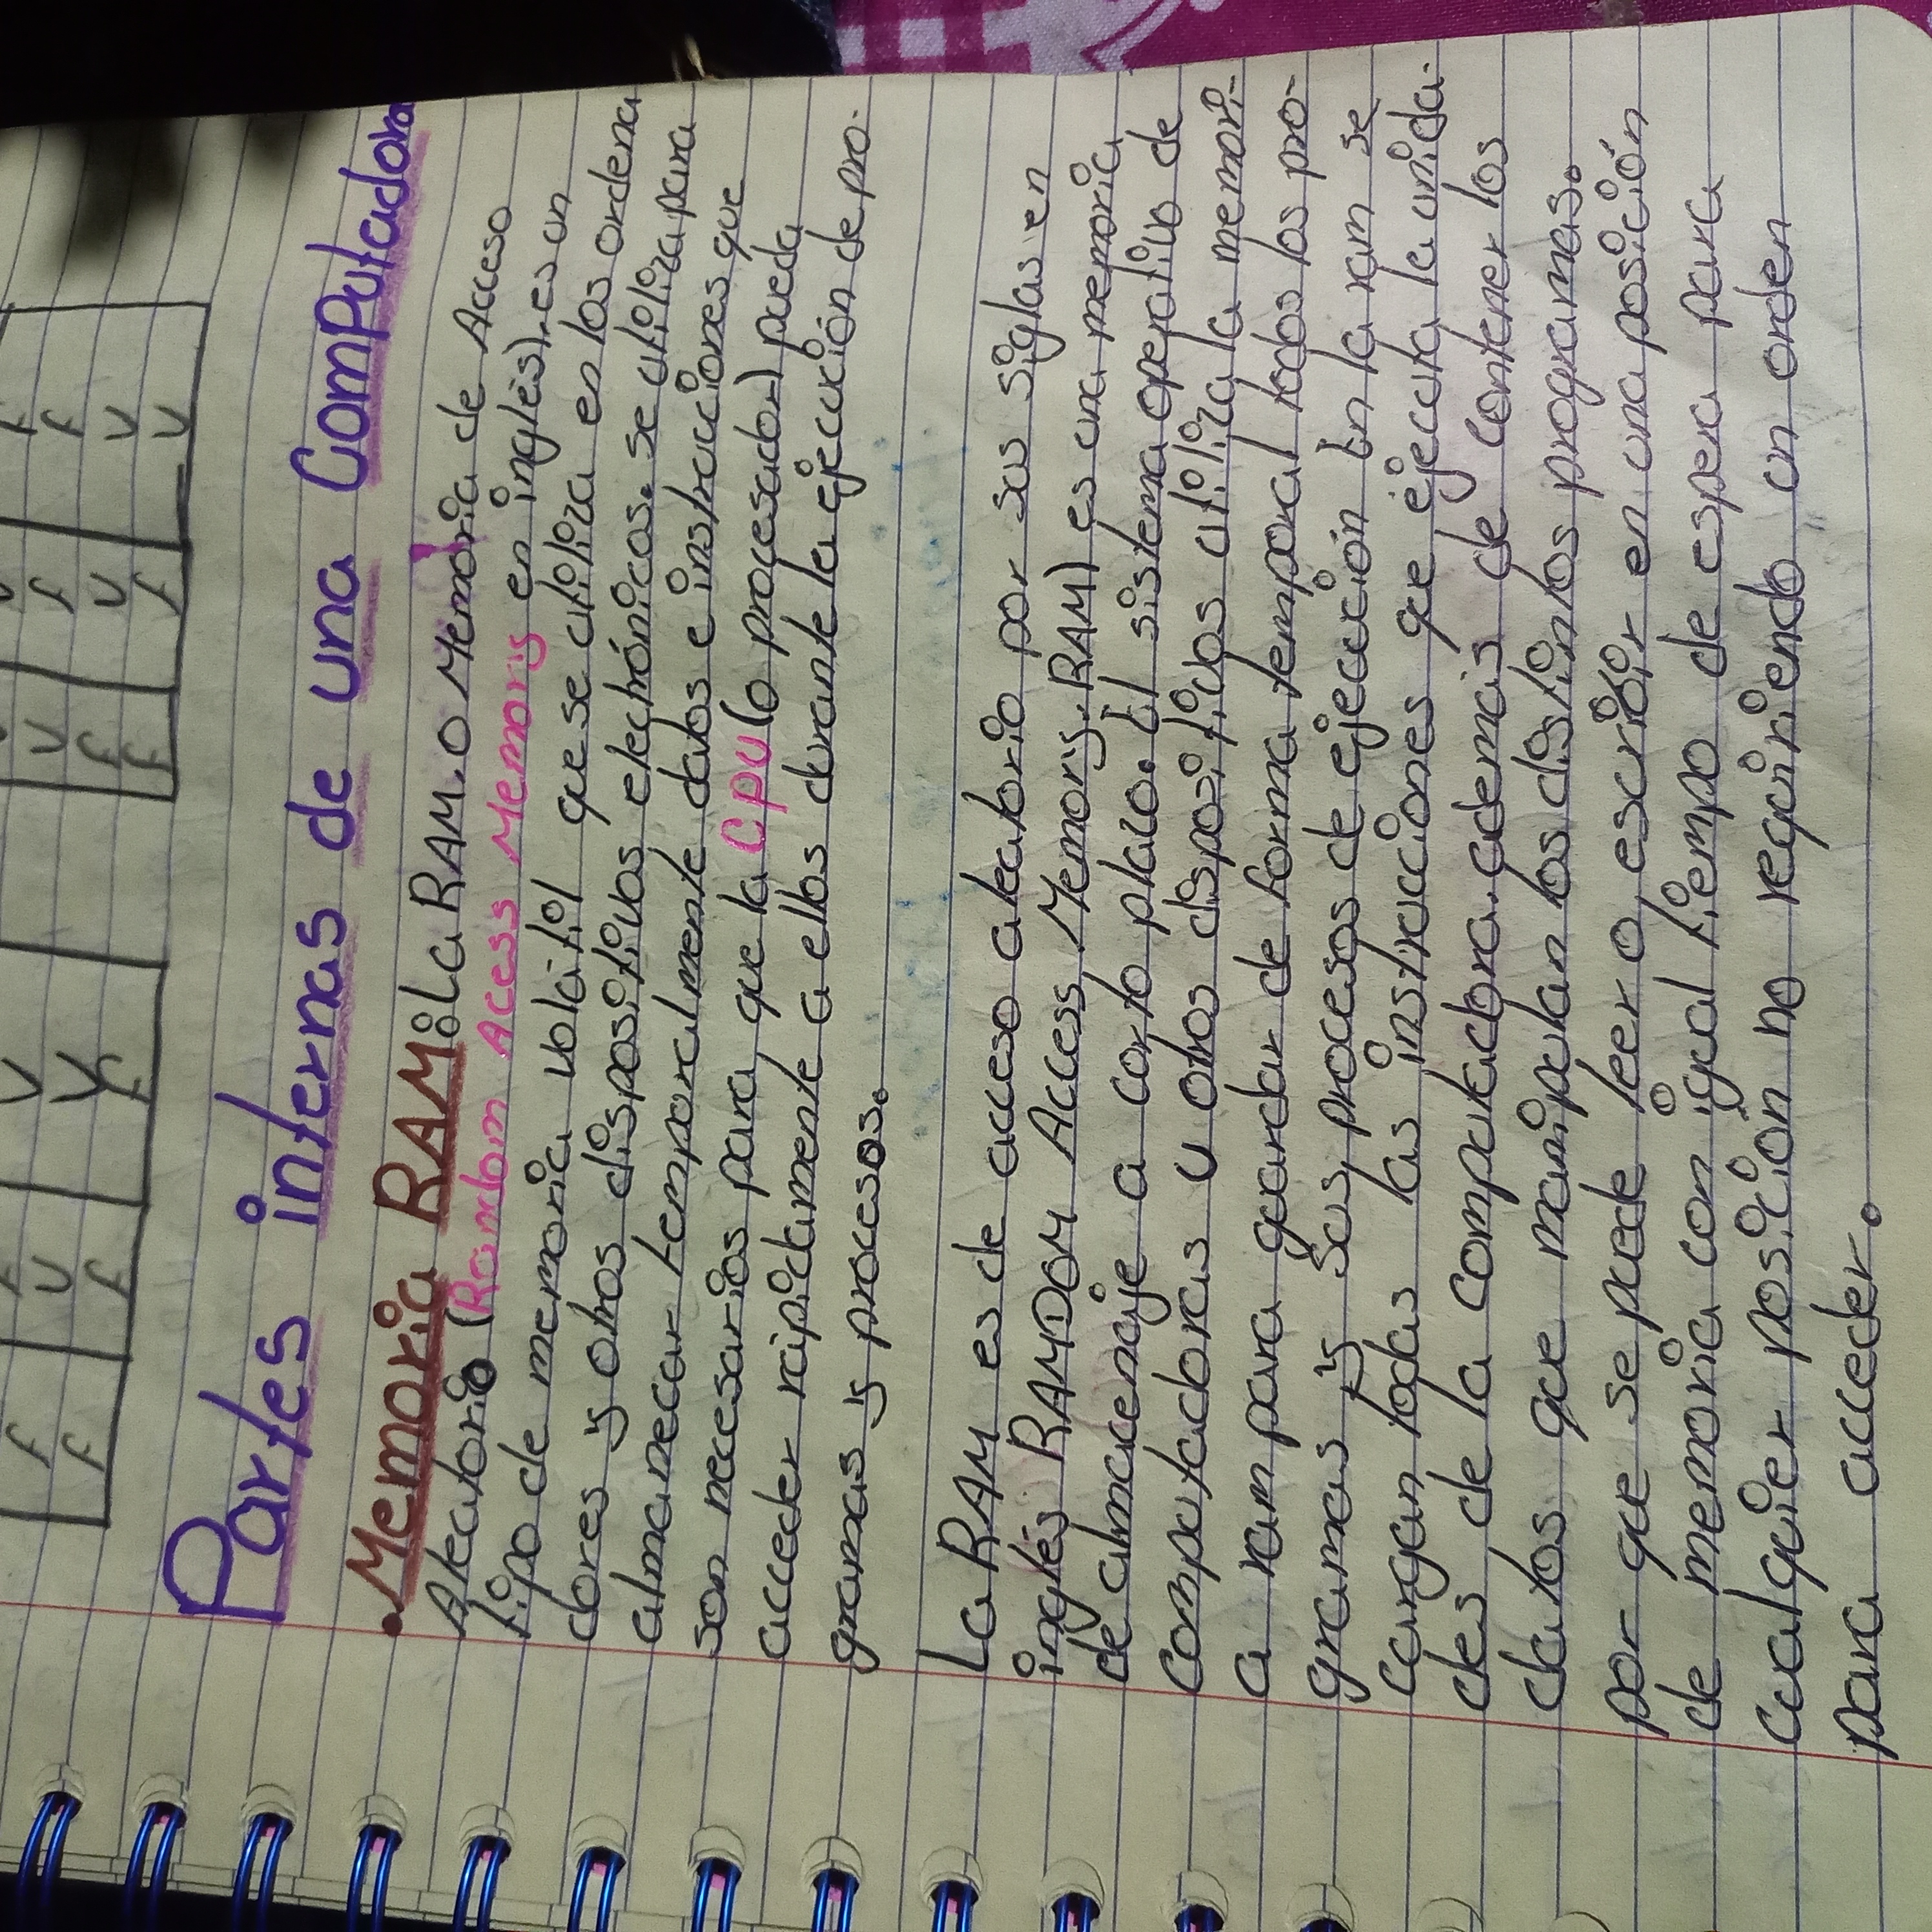 F
F F
V F V V V
F V F V V
F F F F F V
Partes internas de una Computadora
•Memoria RAM: La RAM. o Memoria de Acceso
Aleatorio (Rambon Acess Memoris en inglés), es un
tipo de memoria volátil que se utiliza en los ordena
dores y otros dispositivos electrónicos. se utiliza para
almanecar temporalmente datos e instrucciones que
son necesarios para que la CPU (o procesador) pueda
acceder rápidamente a ellos durante la ejecución de pro-
gramas y procesos.
La RAM es de acceso aleatorio por sus siglas en
inglés RAMDOM Access Memory. RAM) es una memoria
de almacenaje a corto plazo. El sistema operativo de
computadoras u otros dispositivos utiliza la memori-
a ram para guardar de forma temporal todos los pro-
gramas y sus procesos de ejecución En la ram se
cargan todas las instrucciones que ejecuta la unida-
des de la computadora. ademas de contener los
datos que manipulan los distintos programas.
por que se puede leer o escribir en una posición
de memoria con igual tiempo de espera para
cualquier posición no requiriendo un orden
para acceder.